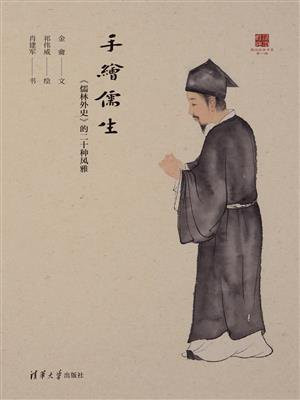 手繪儒生
《儒林外史》的二十种风雅
金龠——文
祁伟威——绘
肖建军——书
清華大学出版社